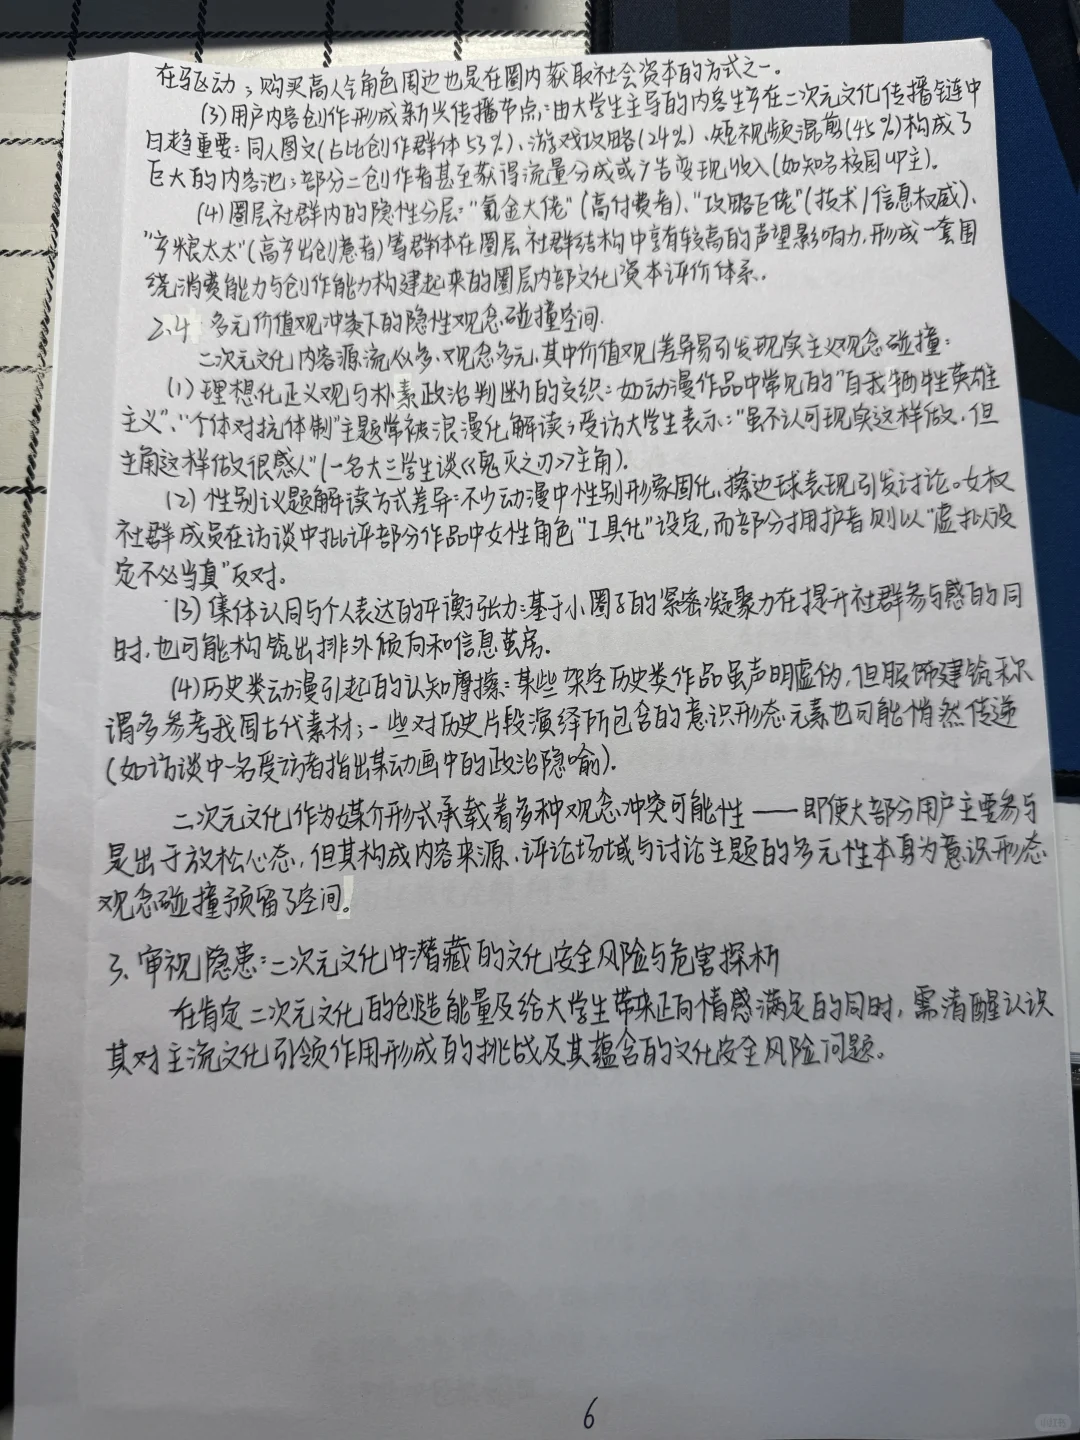 在驱动；购买高人气角色周边也是在圈内获取社会资本的方式之一。
(3)用户内容创作形成新兴传播节点：由大学生主导的内容生产在二次元文化传播链中
日趋重要：同人图文(占比创作群体53%)、游戏攻略(24%)、短视频混剪(45%)构成了
巨大的内容池；部分二创作者甚至获得流量分成或广告变现收入(如知名校园UP主)。
(4)圈层社群内的隐性分层："氪金大佬"(高付费者)、"攻略巨佬"(技术/信息权威)、
"产粮太太"(高产出创意者)等群体在圈层社群结构中享有较高的声望影响力，形成一套围
绕消费能力与创作能力构建起来的圈层内部文化资本评价体系。
2.4 多元价值观冲突下的隐性观念碰撞空间.
二次元文化内容源流众多、观念多元，其中价值观差异易引发现实主义观念碰撞：
(1)理想化正义观与朴素政治判断的交织：如动漫作品中常见的"自我牺牲英雄
主义"、"个体对抗体制"主题常被浪漫化解读；受访大学生表示："虽不认可现实这样做，但
主角这样做很感人"(一名大三学生谈《鬼灭之刃》主角).
(2)性别议题解读方式差异：不少动漫中性别形象固化、擦边球表现引发讨论。女权
社群成员在访谈中批评部分作品中女性角色"工具化"设定，而部分拥护者则以"虚拟设
定不必当真"反对。
(3)集体认同与个人表达的平衡张力：基于小圈子的紧密凝聚力在提升社群参与感的同
时，也可能构筑出排外倾向和信息茧房.
(4)历史类动漫引起的认知摩擦：某些架空历史类作品虽声明虚伪，但服饰建筑称
谓多参考我国古代素材；一些对历史片段演绎所包含的意识形态元素也可能悄然传递
(如访谈中一名受访者指出某动画中的政治隐喻).
二次元文化作为媒介形式承载着多种观念冲突可能性——即使大部分用户主要参与
是出于放松心态，但其构成内容来源、评论场域与讨论主题的多元性本身为意识形态
观念碰撞预留了空间。
3、审视隐患：二次元文化中潜藏的文化安全风险与危害探析
在肯定二次元文化的创造能量及给大学生带来正向情感满足的同时，需清醒认识
其对主流文化引领作用形成的挑战及其蕴含的文化安全风险问题。
6
小红书